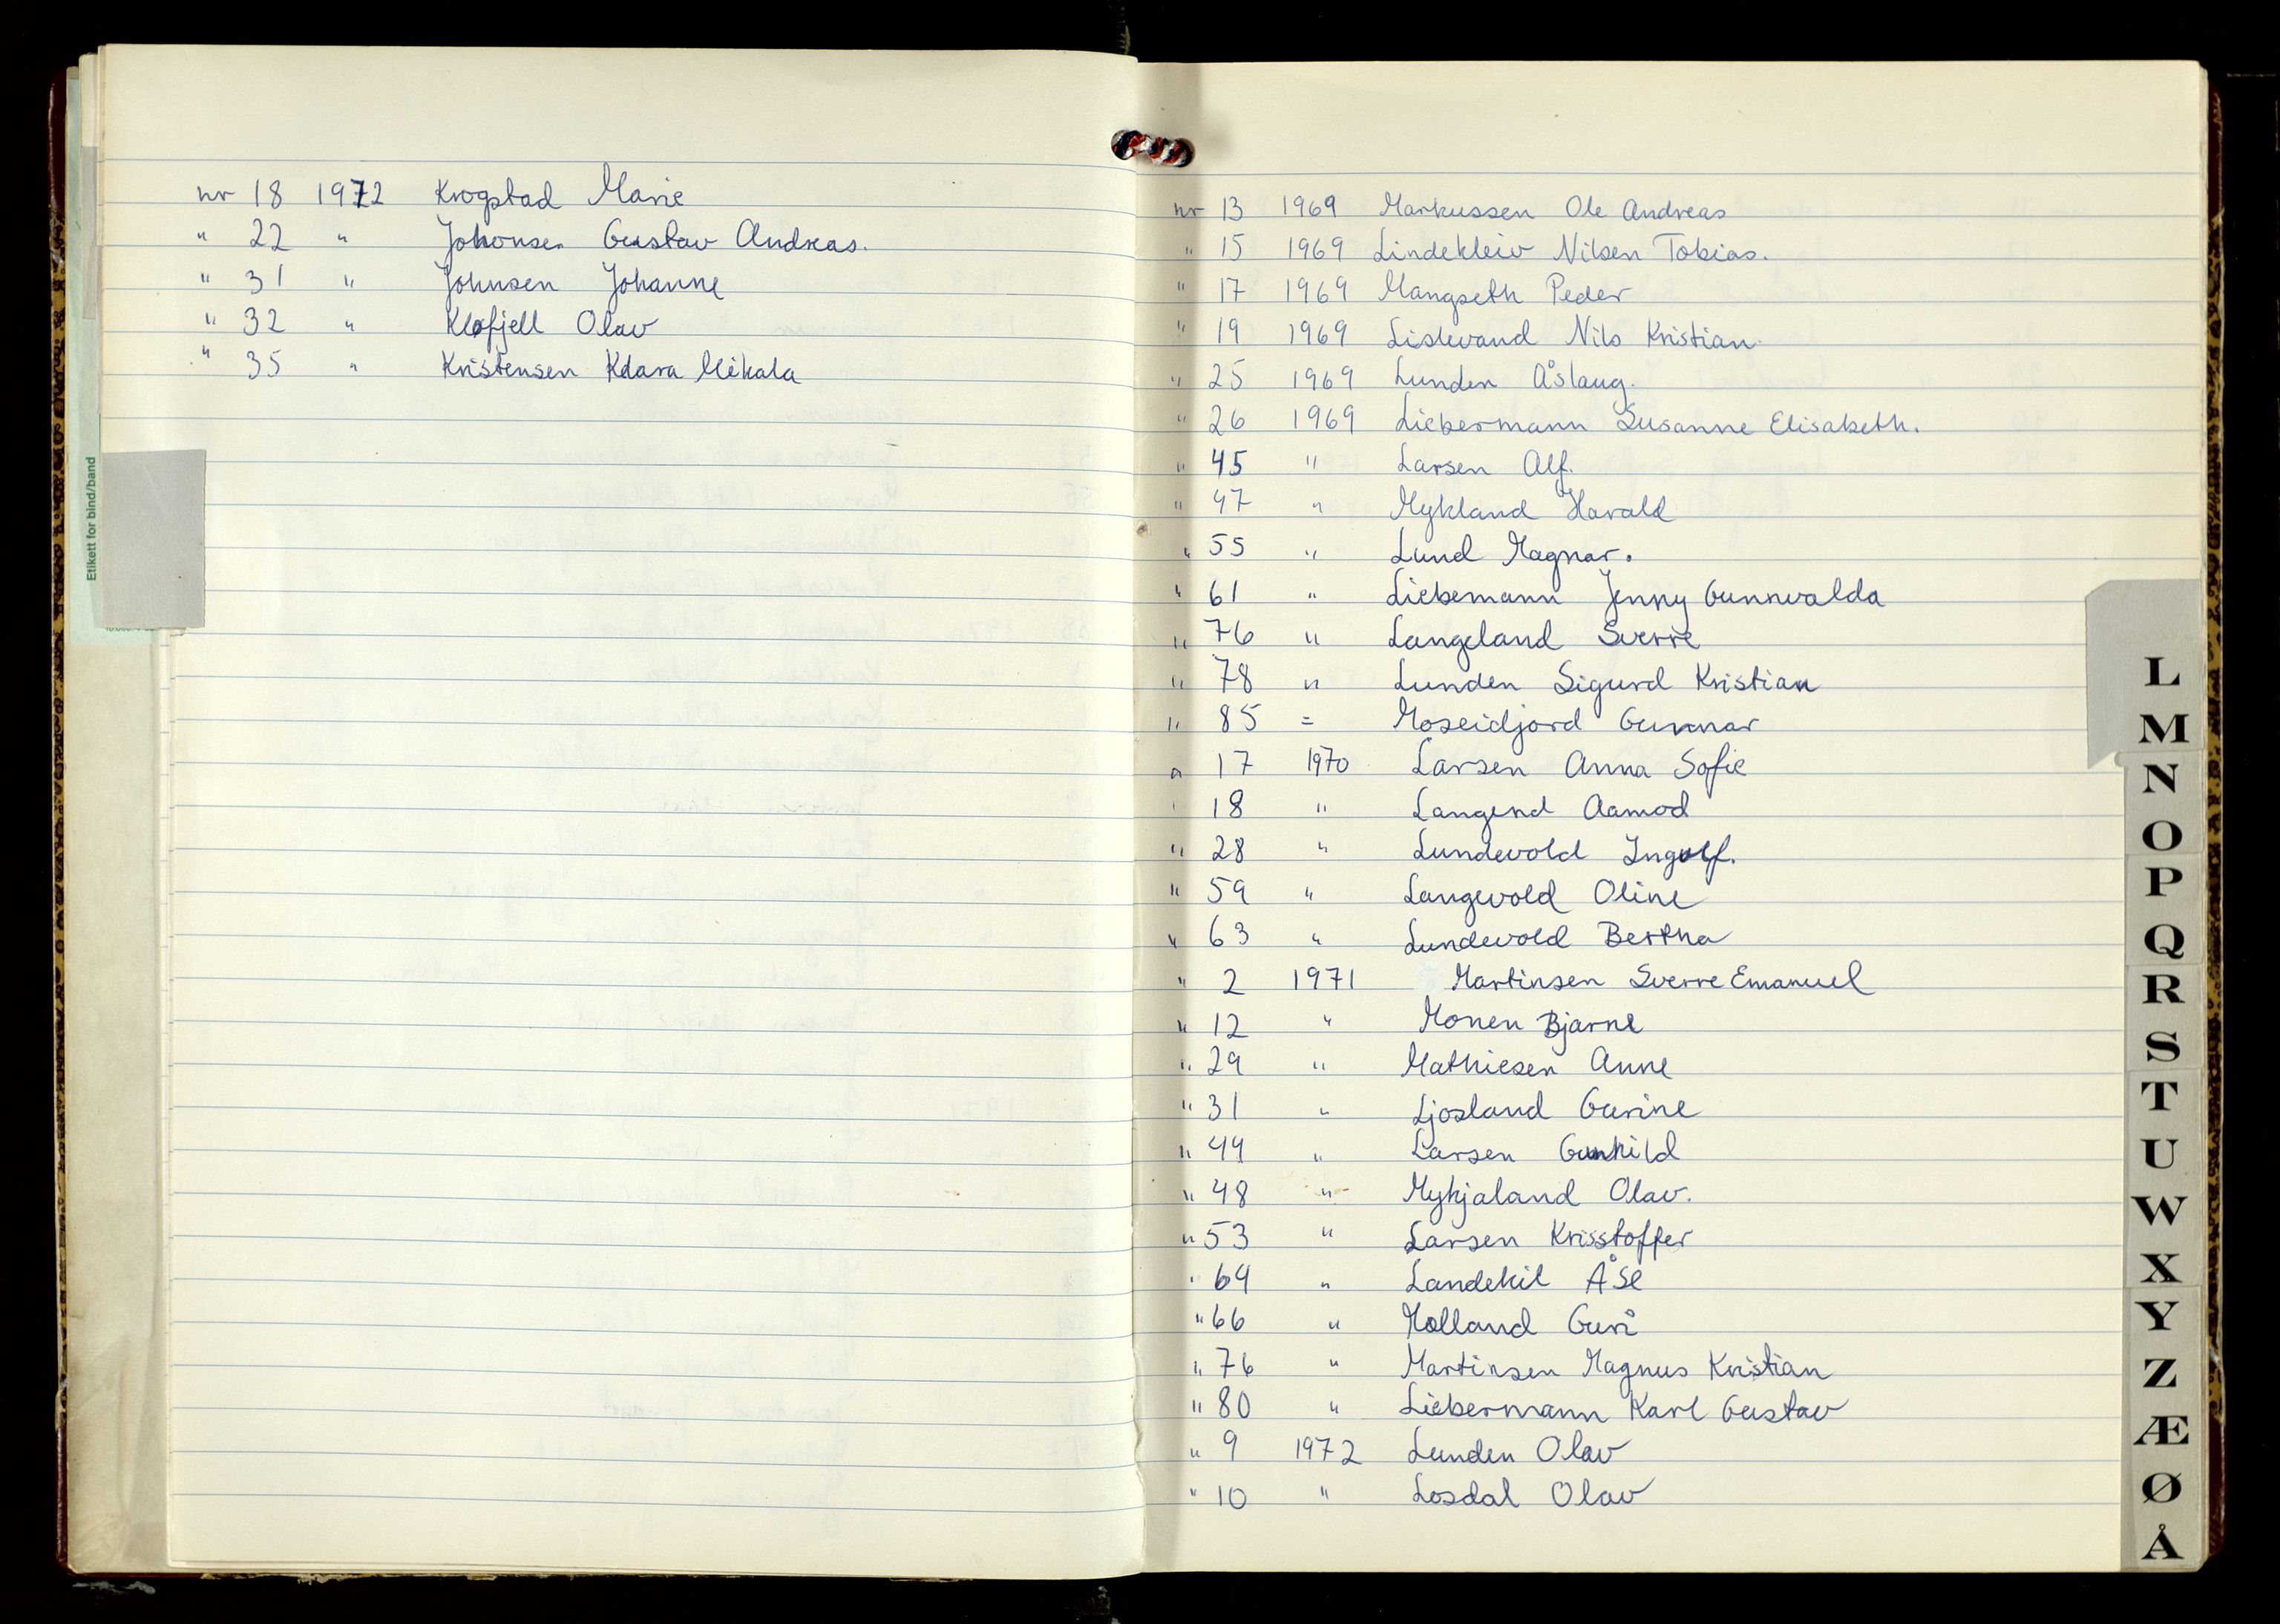 nr 18 1972 Krogstad Marie
" 22 " Johonsen Gustav Andreas.
" 31 " Johnsen Johanne
" 32 " Kløfjell Olav
" 35 " Kristensen Kdara Mikala
Etikett for bind/band
nr 13 1969 Markussen Ole Andreas
" 15 1969 Lindekleiv Nilsen Tobias.
" 17 1969 Mangseth Peder
" 19 1969 Lislevand Nils Kristian
" 25 1969 Lunden Åslaug.
" 26 1969 Liebermann Susanne Elisabeth.
" 45 " Larsen Alf.
" 47 " Mykland Harald
" 55 " Lund Magnar.
" 61 " Liebemann Jenny Gunnvalda
" 76 " Langeland Sverre
" 78 " Lunden Sigurd Kristian
" 85 = Moseidjord Gunnar
" 17 1970 Larsen Anna Sofie
" 18 " Langend Aamod
" 28 " Lundevold Ingolf.
" 59 " Langevold Oline
" 63 " Lundevold Bertha
" 2 1971 Martinsen Sverre Emanuel
" 12 " Monen Bjarne
" 29 " Mathiesen Anne
" 31 " Ljosland Gurine
" 44 " Larsen Gunhild
" 48 " Mykjaland Olav.
" 53 " Larsen Krisstoffer
" 64 " Landekil Åse
" 66 " Molland Guri
" 76 " Martinsen Magnus Kristian
" 80 " Liebermann Karl Gustav
" 9 1972 Lunden Olav
" 10 " Losdal Olav
L
M
N
O
P
Q
R
S
T
U
W
X
Y
Z
Æ
Ø
Å